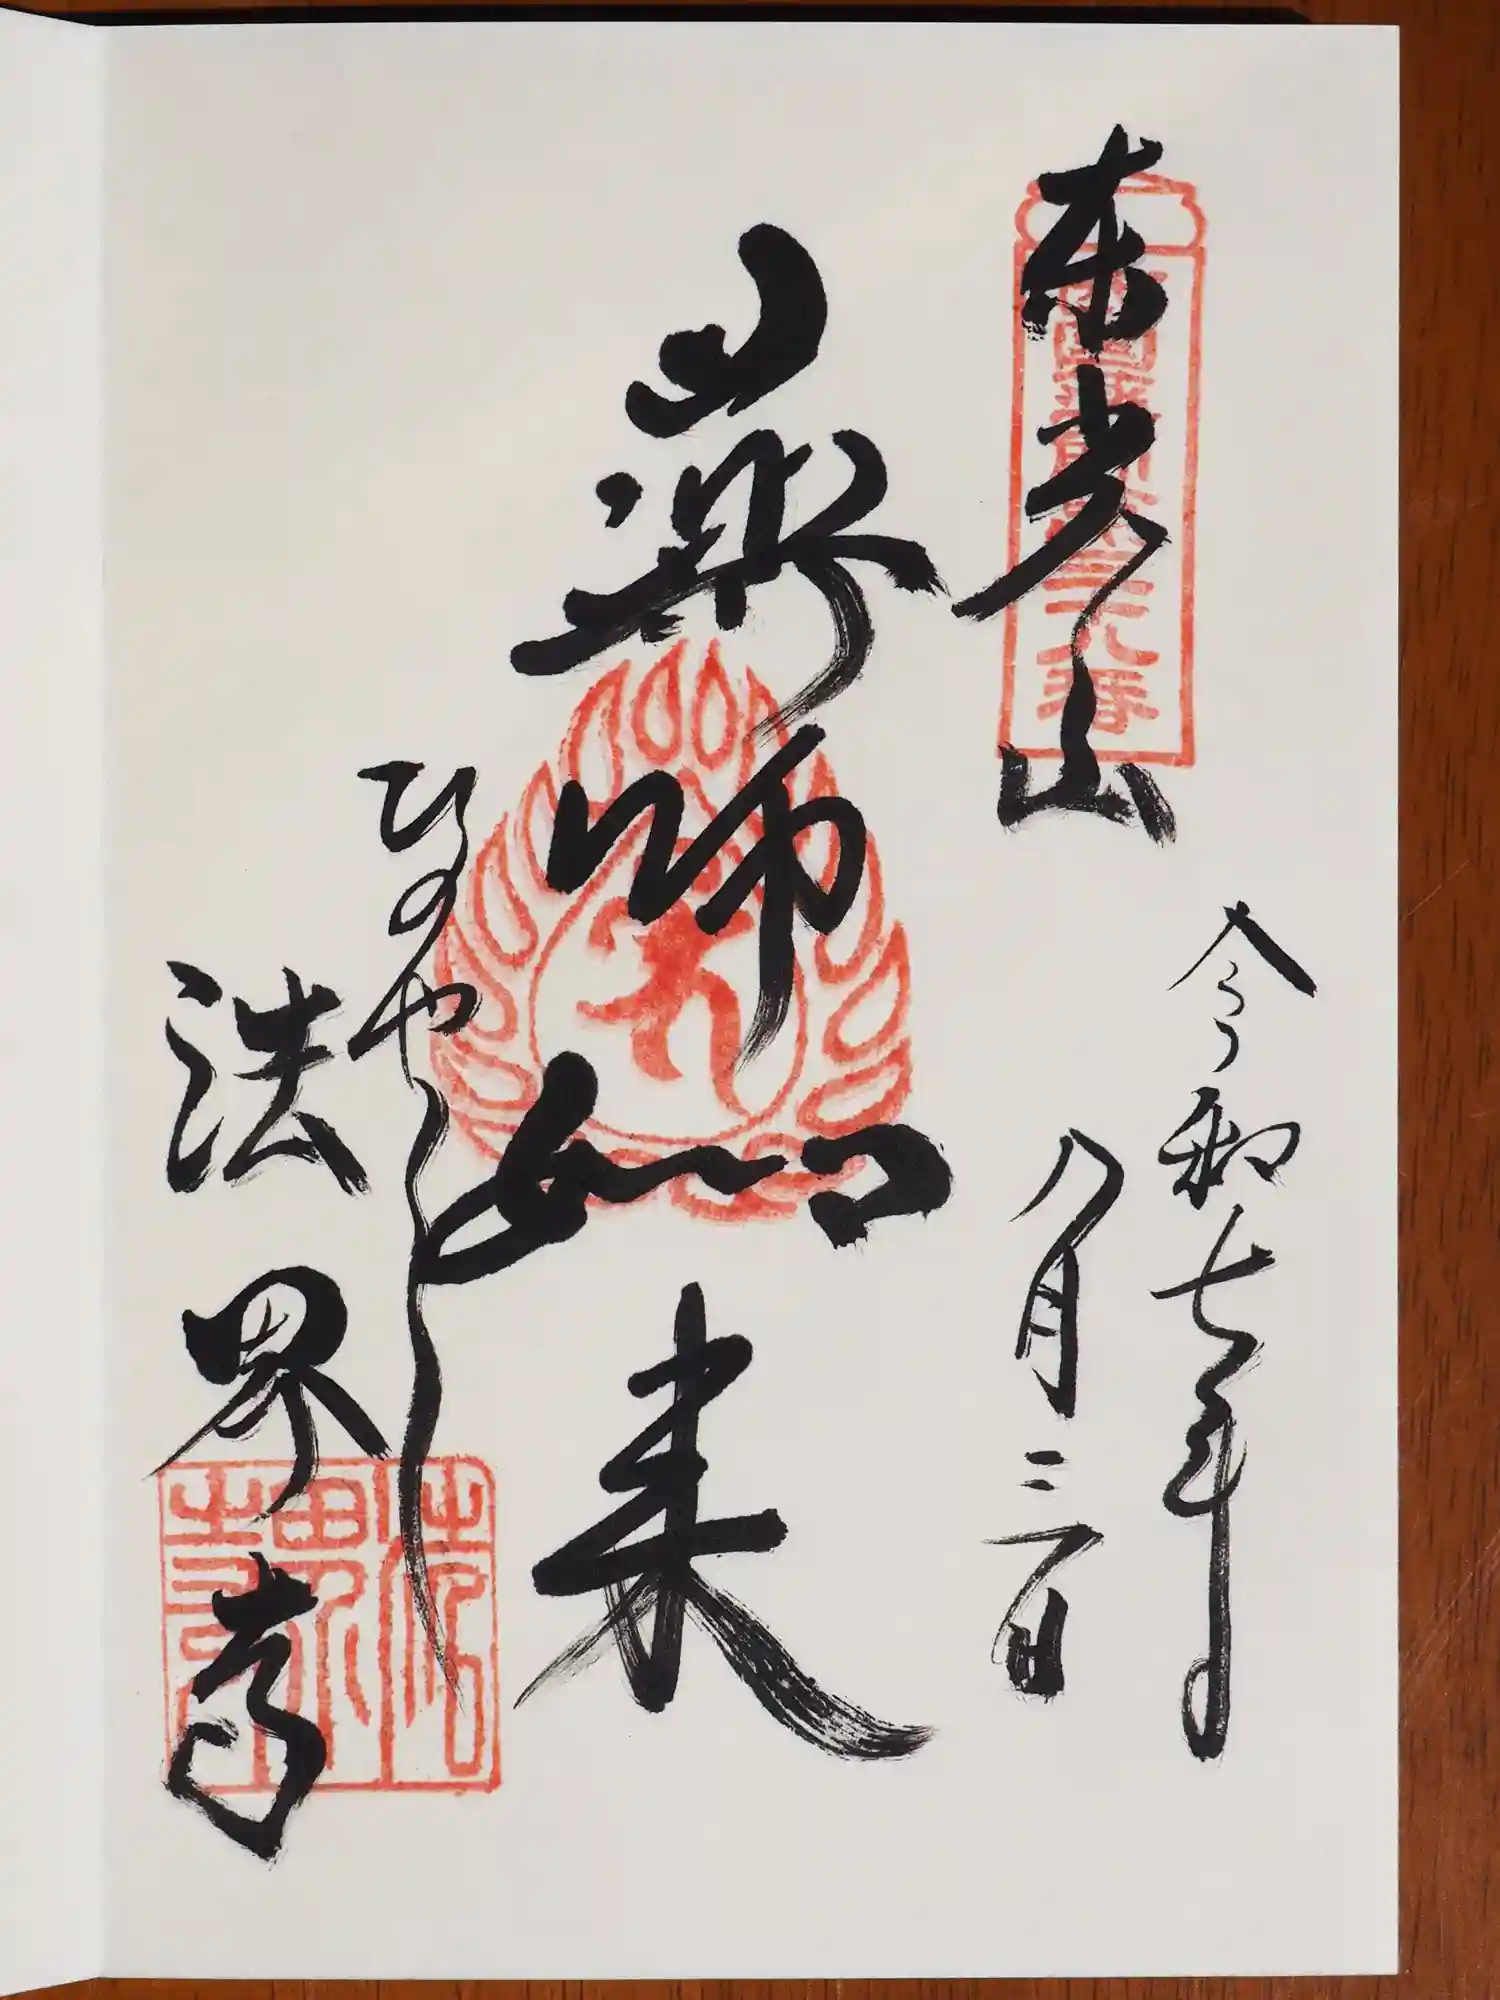 東光山
令和七年
八月三一日
薬師如来
ひのやくし
法界寺
法界寺